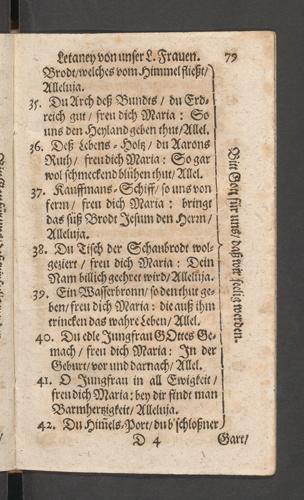 Letaney von unser L. Frauen. 79
Brodt/welches vom Himmel fließt/
Alleluja.
35. Du Arch deß Bundts / du Erd-
reich gut / freu dich Maria : So
uns den Heyland geben thut/Allel.
36. Deß Lebens-Holtz / du Aarons
Ruth / freu dich Maria : So gar
wol schmeckend blühen thut/ Allel.
37. Kauffmans-Schiff/ so uns von
ferrn / freu dich Maria : bringt
das süß Brodt Jesum den Herrn/
Alleluja.
38. Du Tisch der Schaubrodt wol-
geziert / freu dich Maria : Dein
Nam billich geehret wird/ Alleluja.
39. Ein Wasserbronn/ so den thut ge-
ben/ freu dich Maria : die auß ihm
trincken das wahre Leben/ Allel.
40. Du edle Jungfrau GOttes Ge-
mach / freu dich Maria : In der
Geburt/ vor und darnach/ Allel.
41. O Jungfrau in all Ewigkeit /
freu dich Maria : bey dir findt man
Barmhertzigkeit/ Alleluja.
42. Du Him̃els-Port/ du b'schloßner
D 4 Gart/
Bitt Gott für uns/ daß wir seelig werden.